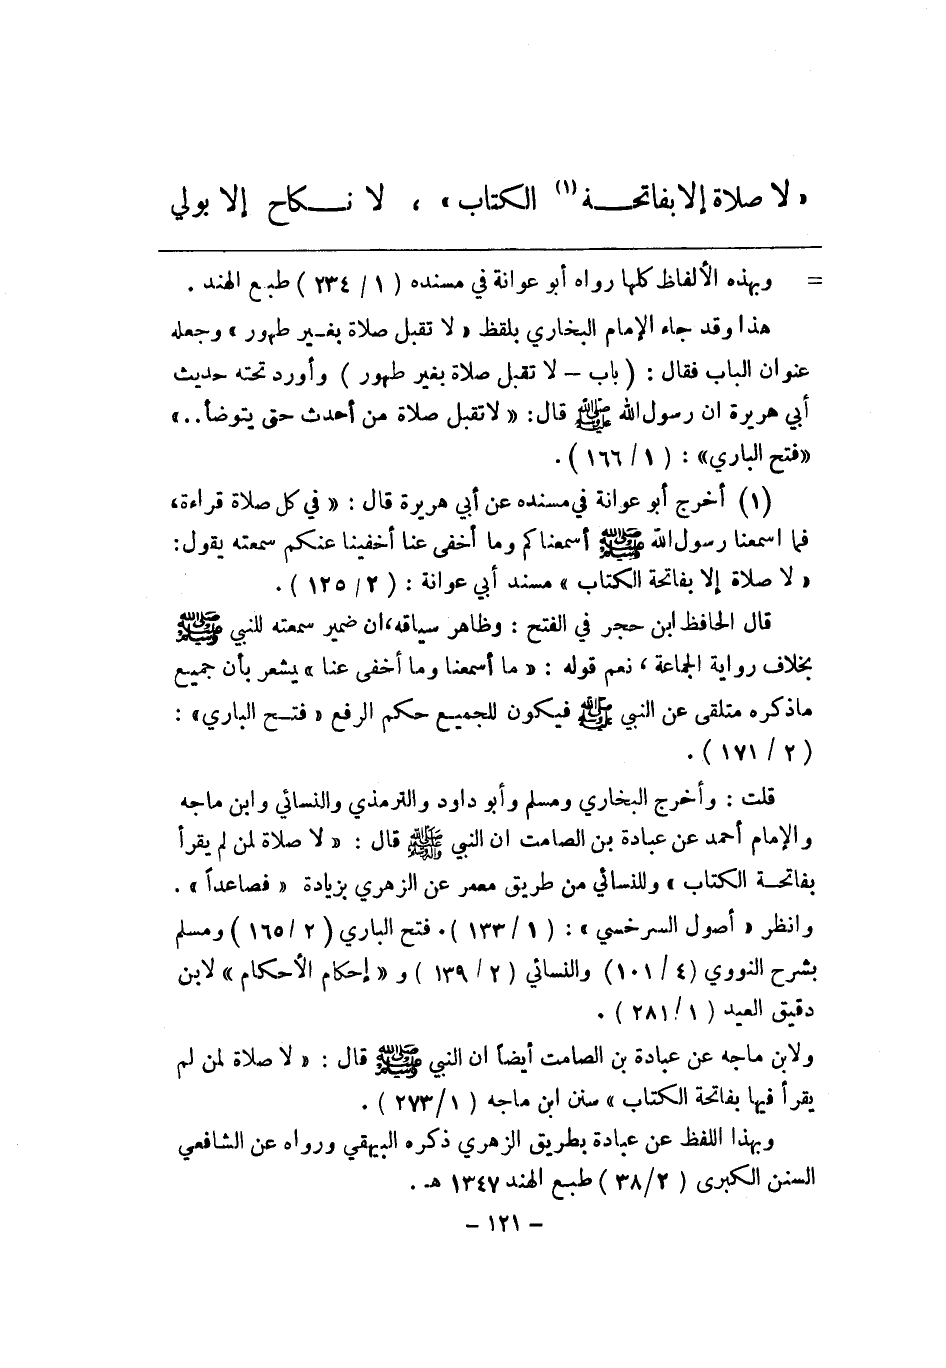 « لا صلاة إلا بفاتحـــة (١) الكتاب » ، لا نـــكاح إلا بولي
= وبهذه الألفاظ كلها رواه أبو عوانة في مسنده ( ١ / ٢٣٤ ) طبع الهند .
هذا وقد جاء الإمام البخاري بلفظ « لا تقبل صلاة بغير طهور » وجعله
عنوان الباب فقال : ( باب – لا تقبل صلاة بغير طهور ) وأورد تحته حديث
أبي هريرة ان رسول الله ﷺ قال : « لاتقبل صلاة من أحدث حتى يتوضأ .. »
«فتح الباري» : ( ١ / ١٦٦ ) .
(١) أخرج أبو عوانة في مسنده عن أبي هريرة قال : « في كل صلاة قراءة،
فما اسمعنا رسول الله ﷺ أسمعناكم وما أخفى عنا أخفينا عنكم سمعته يقول :
« لا صلاة إلا بفاتحة الكتاب » مسند أبي عوانة : ( ٢ / ١٢٥ ) .
قال الحافظ ابن حجر في الفتح : وظاهر سياقه، ان ضمير سمعته للنبي ﷺ
بخلاف رواية الجماعة ، نعم قوله : « ما أسمعنا وما أخفى عنا » يشعر بأن جميع
ماذكره متلقى عن النبي ﷺ فيكون للجميع حكم الرفع « فتـح الباري» :
( ٢ / ١٧١ ) .
قلت : وأخرج البخاري ومسلم وأبو داود والترمذي والنسائي وابن ماجه
والإمام أحمد عن عبادة بن الصامت ان النبي ﷺ قال : « لا صلاة لمن لم يقرأ
بفاتحـة الكتاب » وللنسائي من طريق معمر عن الزهري بزيادة « فصاعداً » .
وانظر « أصول السرخسي » : ( ١ / ١٣٣ ) . فتح الباري ( ٢ / ١٦٥ ) ومسلم
بشرح النووي ( ٤ / ١٠١ ) والنسائي ( ٢ / ١٣٩ ) و « إحكام الأحكام » لابن
دقيق العيد ( ١ / ٢٨١ ) .
ولابن ماجه عن عبادة بن الصامت أيضاً ان النبي ﷺ قال : « لا صلاة لمن لم
يقرأ فيها بفاتحة الكتاب » سنن ابن ماجه ( ١ / ٢٧٣ ) .
وبهذا اللفظ عن عبادة بطريق الزهري ذكره البيهقي ورواه عن الشافعي
السنن الكبرى ( ٢ / ٣٨ ) طبـع الهند ١٣٤٧ هـ .
– ١٢١ –